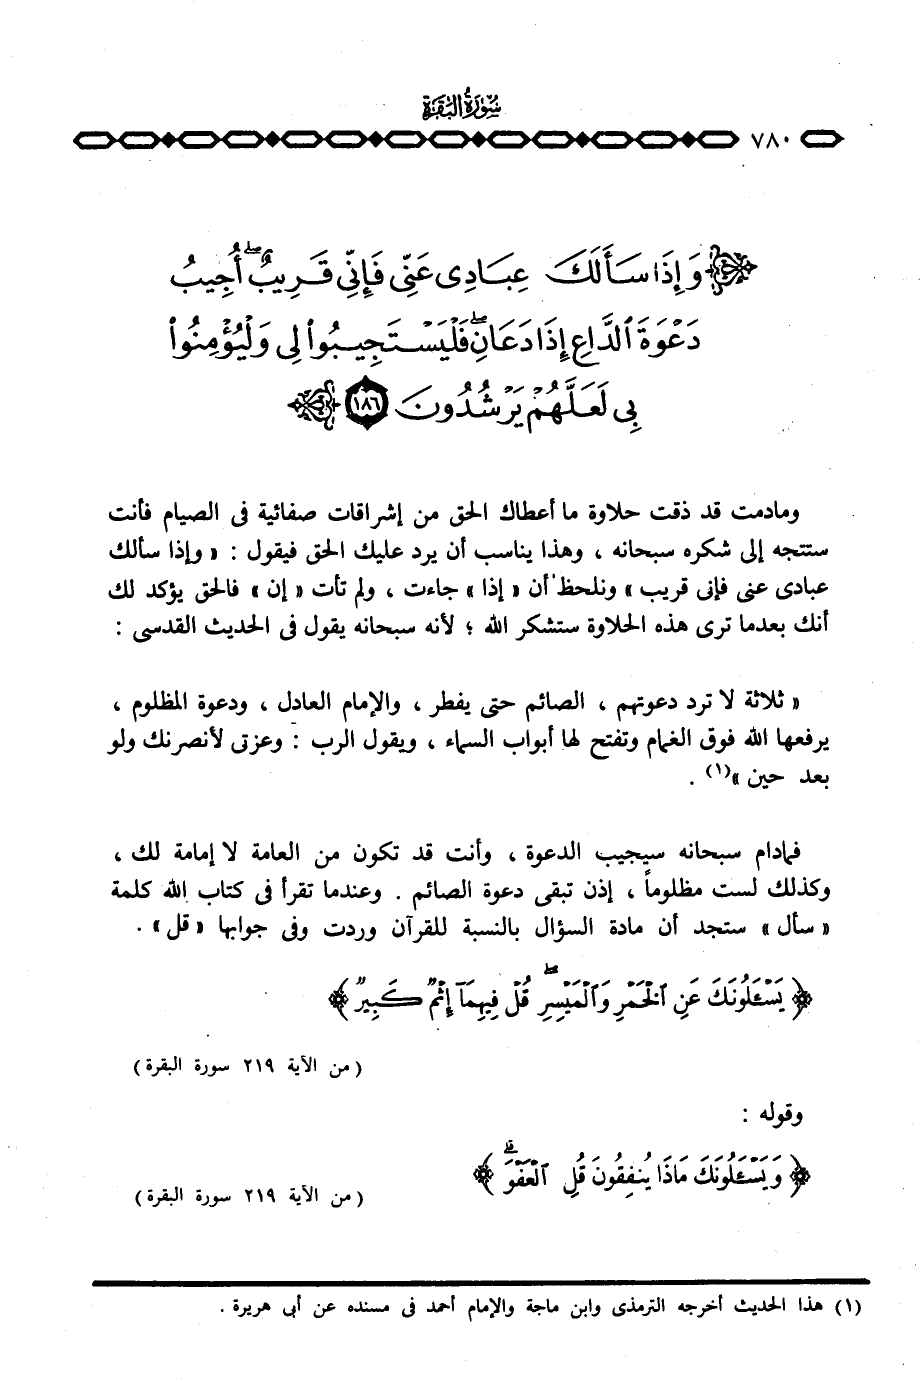 سُورَةُ الْبَقَرَة
٧٨٠
وَإِذَا سَأَلَكَ عِبَادِى عَنِّى فَإِنِّى قَرِيبٌ ۖ أُجِيبُ
دَعْوَةَ ٱلدَّاعِ إِذَا دَعَانِ ۖ فَلْيَسْتَجِيبُوا۟ لِى وَلْيُؤْمِنُوا۟
بِى لَعَلَّهُمْ يَرْشُدُونَ ١٨٦
ومادمت قد ذقت حلاوة ما أعطاك الحق من إشراقات صفائية فى الصيام فأنت
ستتجه إلى شكره سبحانه ، وهذا يناسب أن يرد عليك الحق فيقول : « وإذا سألك
عبادى عنى فإنى قريب » ونلحظ أن « إذا » جاءت ، ولم تأت « إن » فالحق يؤكد لك
أنك بعدما ترى هذه الحلاوة ستشكر الله ؛ لأنه سبحانه يقول فى الحديث القدسى :
« ثلاثة لا ترد دعوتهم ، الصائم حتى يفطر ، والإمام العادل ، ودعوة المظلوم ،
يرفعها الله فوق الغمام وتفتح لها أبواب السماء ، ويقول الرب : وعزتى لأنصرنك ولو
بعد حين »(١) .
فمادام سبحانه سيجيب الدعوة ، وأنت قد تكون من العامة لا إمامة لك ،
وكذلك لست مظلوماً ، إذن تبقى دعوة الصائم . وعندما تقرأ فى كتاب الله كلمة
« سأل » ستجد أن مادة السؤال بالنسبة للقرآن وردت وفى جوابها « قل » .
﴿ يَسْـَٔلُونَكَ عَنِ ٱلْخَمْرِ وَٱلْمَيْسِرِ ۖ قُلْ فِيهِمَآ إِثْمٌ كَبِيرٌ ﴾
( من الآية ٢١٩ سورة البقرة )
وقوله :
﴿ وَيَسْـَٔلُونَكَ مَاذَا يُنفِقُونَ قُلِ ٱلْعَفْوَ ۗ ﴾
( من الآية ٢١٩ سورة البقرة )
(١) هذا الحديث أخرجه الترمذى وابن ماجة والإمام أحمد فى مسنده عن أبى هريرة .